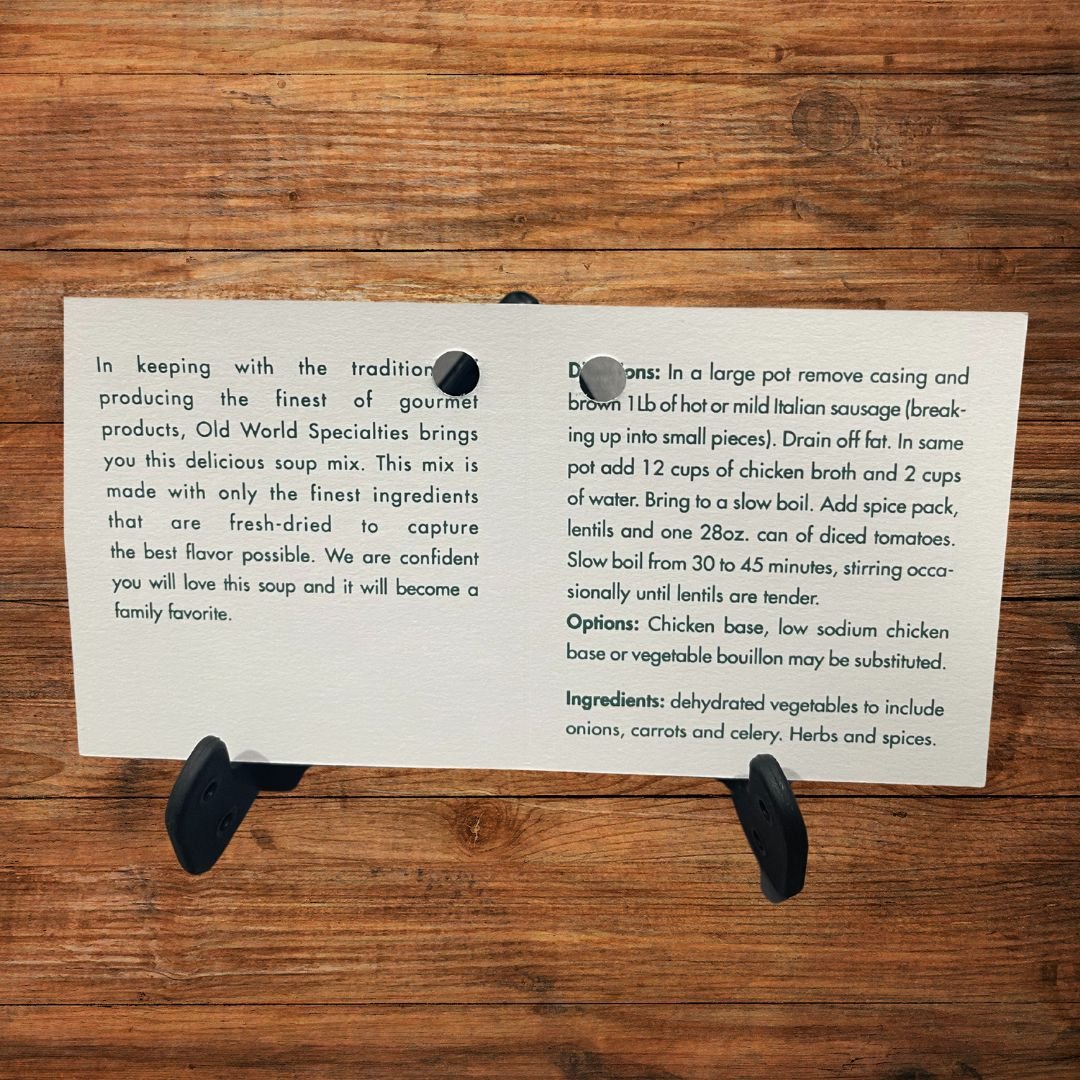 In keeping with the tradition
producing the finest of gourmet
products, Old World Specialties brings
you this delicious soup mix. This mix is
made with only the finest ingredients
that are fresh-dried to capture
the best flavor possible. We are confident
you will love this soup and it will become a
family favorite.
In a large pot remove casing and
brown 1 Lb of hot or mild Italian sausage (break-
ing up into small pieces). Drain off fat. In same
pot add 12 cups of chicken broth and 2 cups
of water. Bring to a slow boil. Add spice pack,
lentils and one 28oz. can of diced tomatoes.
Slow boil from 30 to 45 minutes, stirring occa-
sionally until lentils are tender.
Options: Chicken base, low sodium chicken
base or vegetable bouillon may be substituted.
Ingredients: dehydrated vegetables to include
onions, carrots and celery. Herbs and spices.